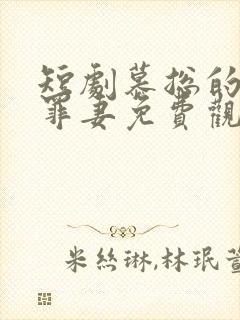 短劇慕總的
罪妻免費觀
米絲琳,林珉萱